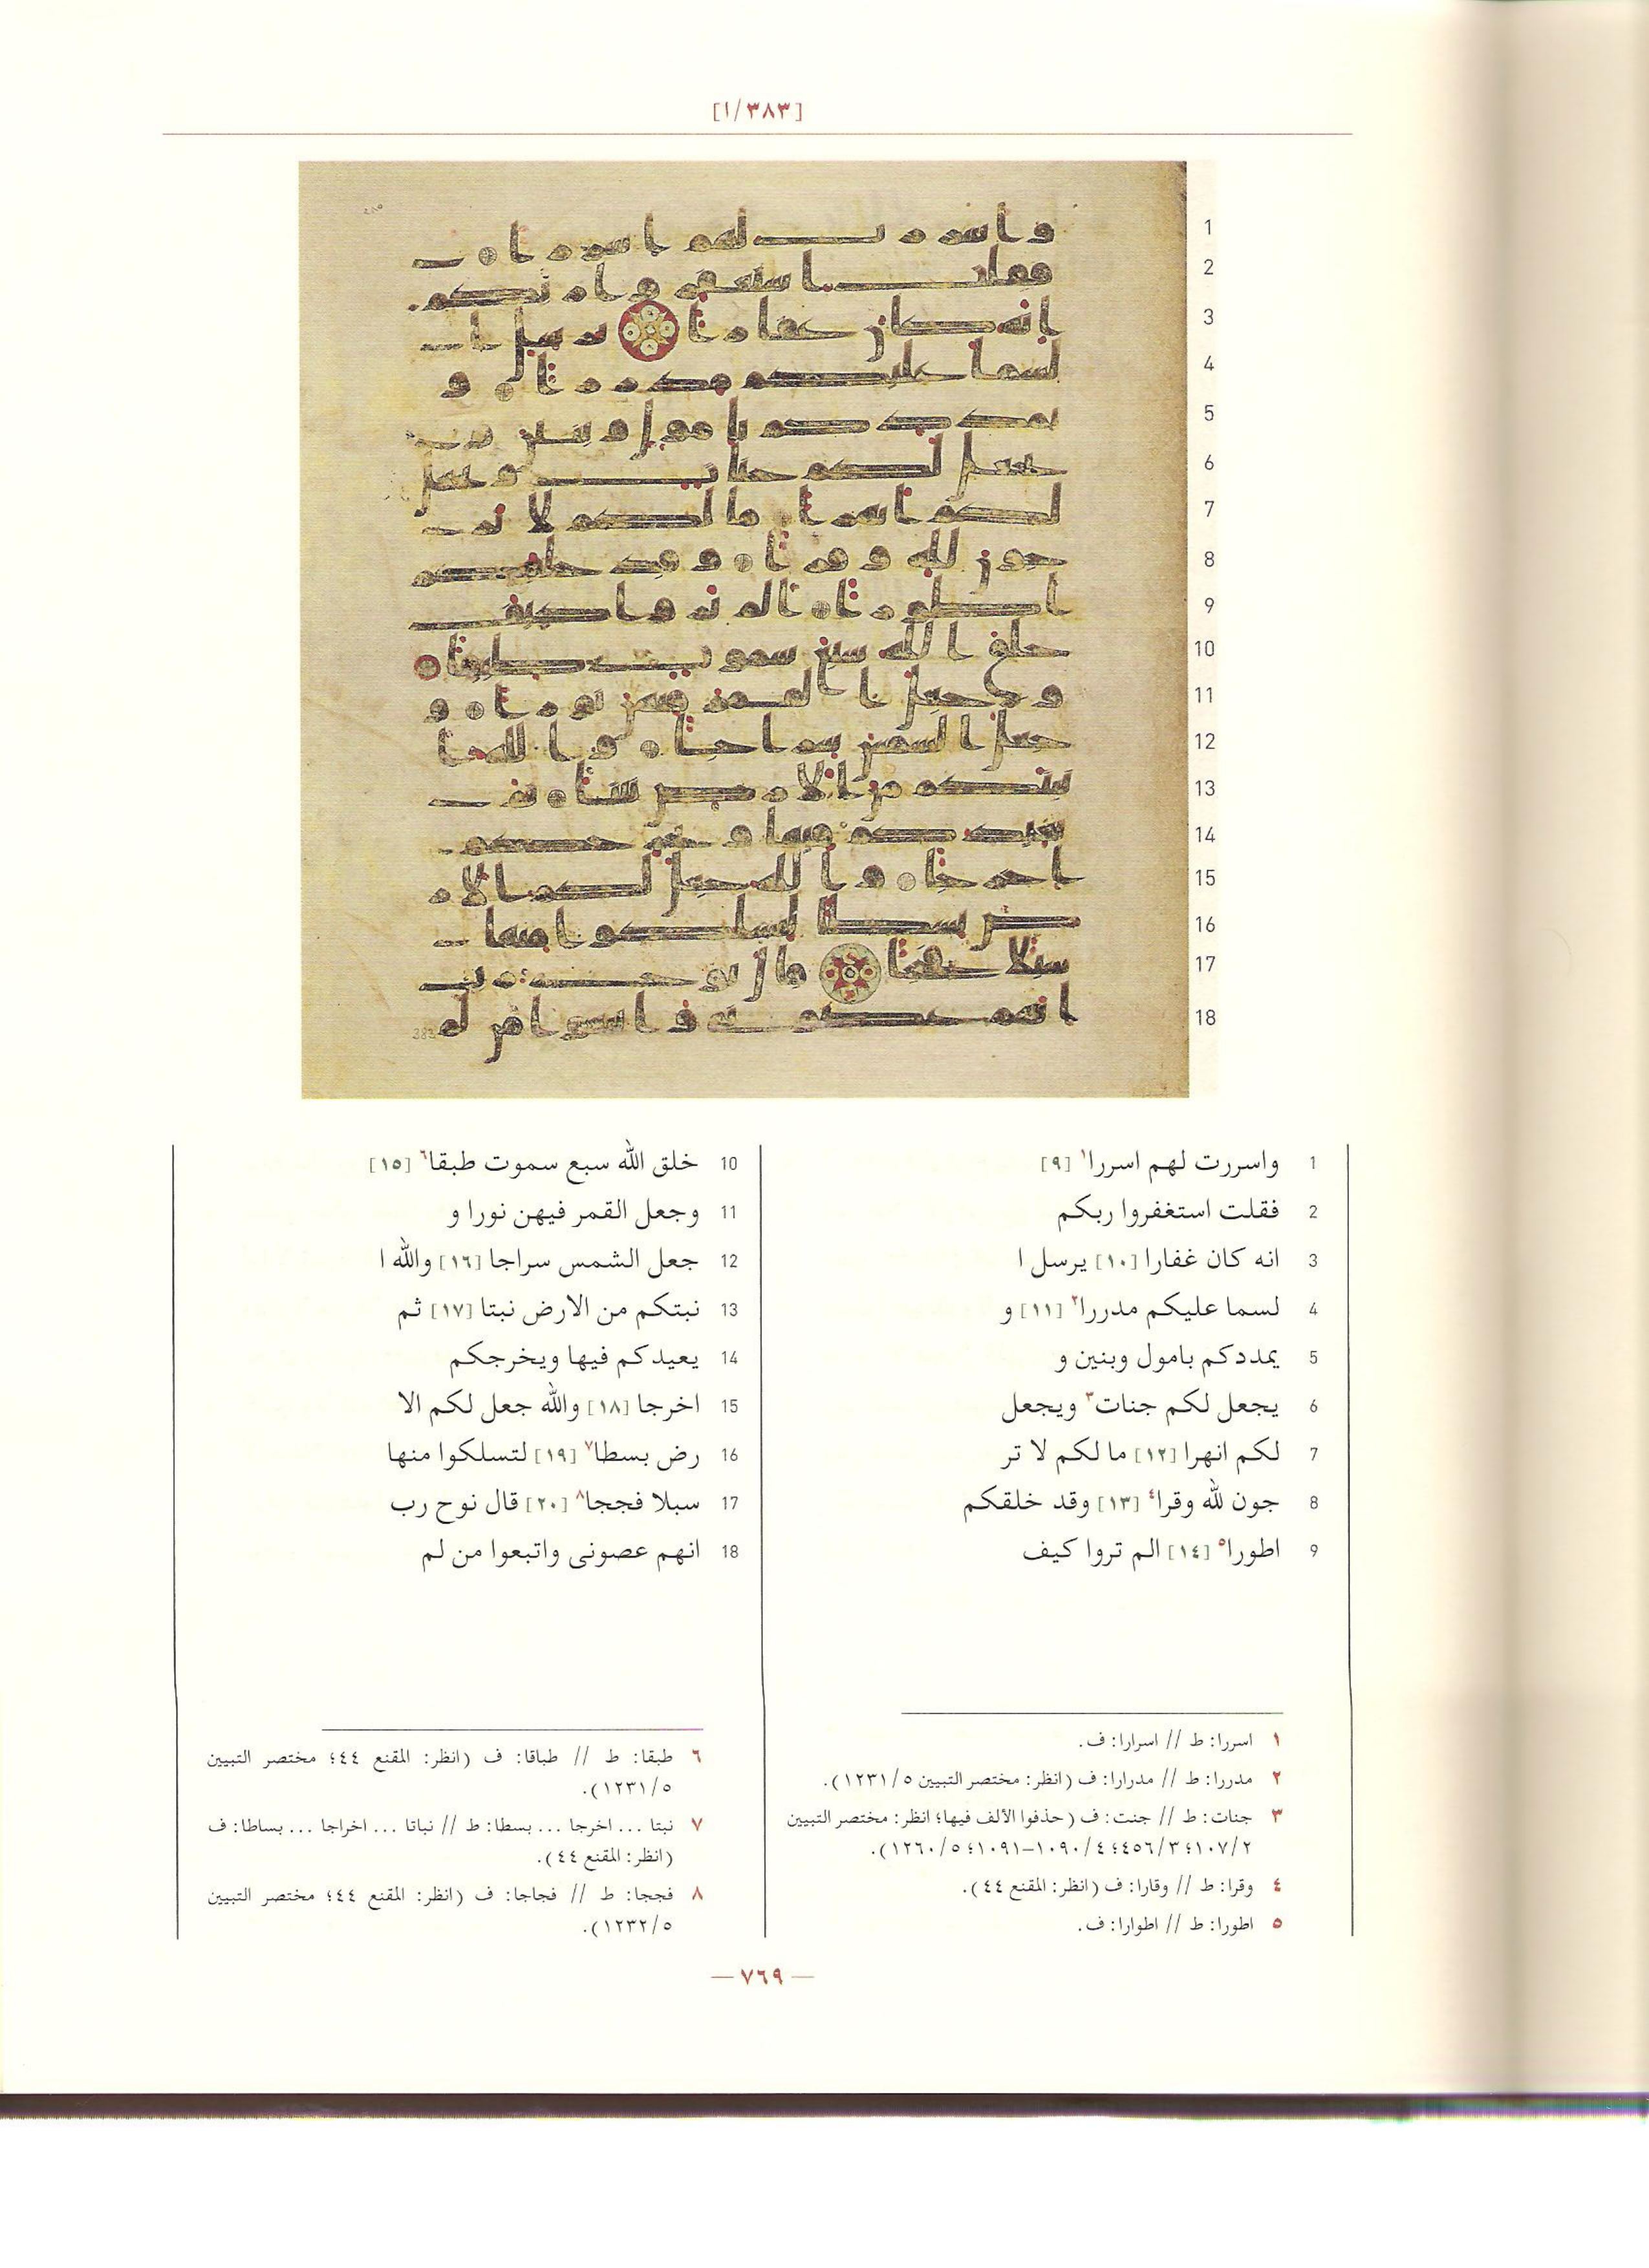 [٣٨٣/١]
1 واسررت لهم اسررا١ [٩]
2 فقلت استغفروا ربكم
3 انه كان غفارا [١٠] يرسل ا
4 لسما عليكم مدررا٢ [١١] و
5 يمددكم بامول وبنين و
6 يجعل لكم جنات٣ ويجعل
7 لكم انهرا [١٢] ما لكم لا تر
8 جون لله وقرا٤ [١٣] وقد خلقكم
9 اطورا٥ [١٤] الم تروا كيف
10 خلق الله سبع سموت طبقا٦ [١٥]
11 وجعل القمر فيهن نورا و
12 جعل الشمس سراجا [١٦] والله ا
13 نبتكم من الارض نبتا [١٧] ثم
14 يعيدكم فيها ويخرجكم
15 اخرجا [١٨] والله جعل لكم الا
16 رض بسطا٧ [١٩] لتسلكوا منها
17 سبلا فججا٨ [٢٠] قال نوح رب
18 انهم عصونى واتبعوا من لم
١ اسررا: ط // اسرارا: ف.
٢ مدررا: ط // مدرارا: ف (انظر: مختصر التبيين ١٢٣١/٥).
٣ جنات: ط // جنت: ف (حذفوا الألف فيها؛ انظر: مختصر التبيين
١٠٧/٢؛ ٤٥٦/٣؛ ١٠٩٠/٤–١٠٩١؛ ١٢٦٠/٥).
٤ وقرا: ط // وقارا: ف (انظر: المقنع ٤٤).
٥ اطورا: ط // اطوارا: ف.
٦ طبقا: ط // طباقا: ف (انظر: المقنع ٤٤؛ مختصر التبيين
١٢٣١/٥).
٧ نبتا ... اخرجا ... بسطا: ط // نباتا ... اخراجا ... بساطا: ف
(انظر: المقنع ٤٤).
٨ فججا: ط // فجاجا: ف (انظر: المقنع ٤٤؛ مختصر التبيين
١٢٣٢/٥).
— ٧٦٩ —